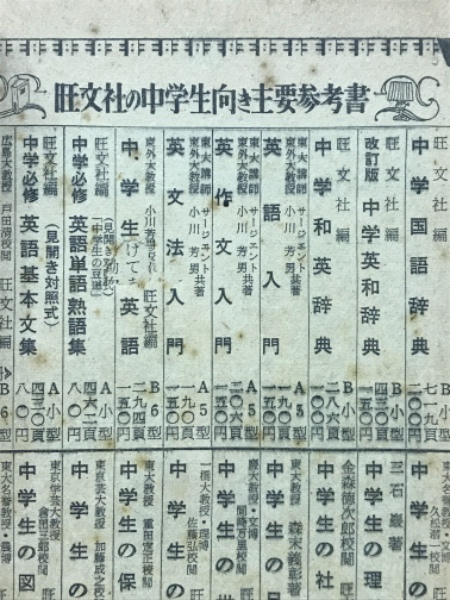 旺文社の中学生向き主要参考書
旺文社編
中学国語辞典
B小型
七一九頁
二〇〇円
旺文社編
改訂版 中学英和辞典
B小型
一五〇円
旺文社編
中学和英辞典
B小型
二八六頁
一〇〇円
東大講師 サージェント
東外大教授 小川芳男 共著
英語入門
A5型
一九〇頁
一五〇円
東大講師 サージェント
東外大教授 小川芳男 共著
英作文入門
A5型
二〇六頁
一五〇円
東大講師 サージェント
東外大教授 小川芳男 共著
英文法入門
A5型
一九〇頁
一五〇円
東外大教授 小川芳男
旺文社編
中学生 英語
B6型
二九四頁
一五〇円
旺文社編
中学必修 英語単語熟語集
A小型
四六二頁
八〇円
旺文社編
中学必修 英語基本文集
(見開き対照式)
A小型
四三〇頁
八〇円
広島大教授 戸田清校閲 旺文社編
B6型
東大名誉教授・文博
久松潜一校閲
中学生の
三石巌著
中学生の理
金森徳次郎校閲
中学生の社
東大教授 森末義彰著
中学生の
慶大教授・文博
間崎万里校閲
中学生の世
一橋大教授・理博
佐藤弘校閲
中学生の
東大教授 重田定正校閲
中学生の保
東京芸大教授 加藤成之校
中学生の
東京学芸大教授
倉田三郎校閲
中学生の図
東大名誉教授・農博